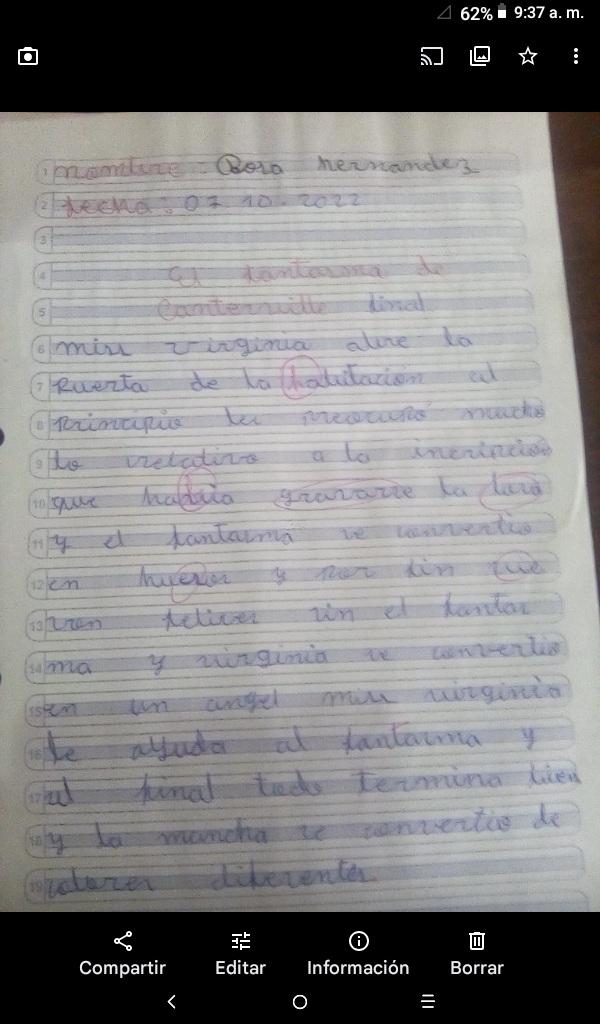 62% 9:37 a. m.
1 nombre: Rosa hernandez
2 fecha: 07 10-2022
3
4 El fantasma de
5 Canterville final
6 miss virginia abre la
7 Puerta de la habitación al
8 Principio les preocupó mucho
9 lo relativo a la incripcion
10 que había gravarse la
11 y el fantasma se convertio
12 en huesos y por fin
13 felices sin el fantas
14 ma y virginia se convertio
15 en un angel miss virginia
16 le ayuda al fantasma y
17 al final todo termina bien
18 y la mancha se convertio de
19 colores diferentes.
Compartir Editar Información Borrar